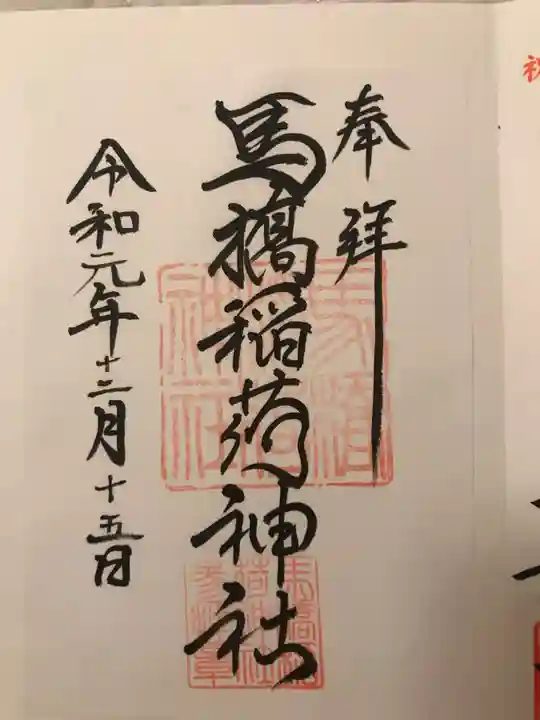 奉拝
馬橋稲荷神社
令和元年十二月十五日